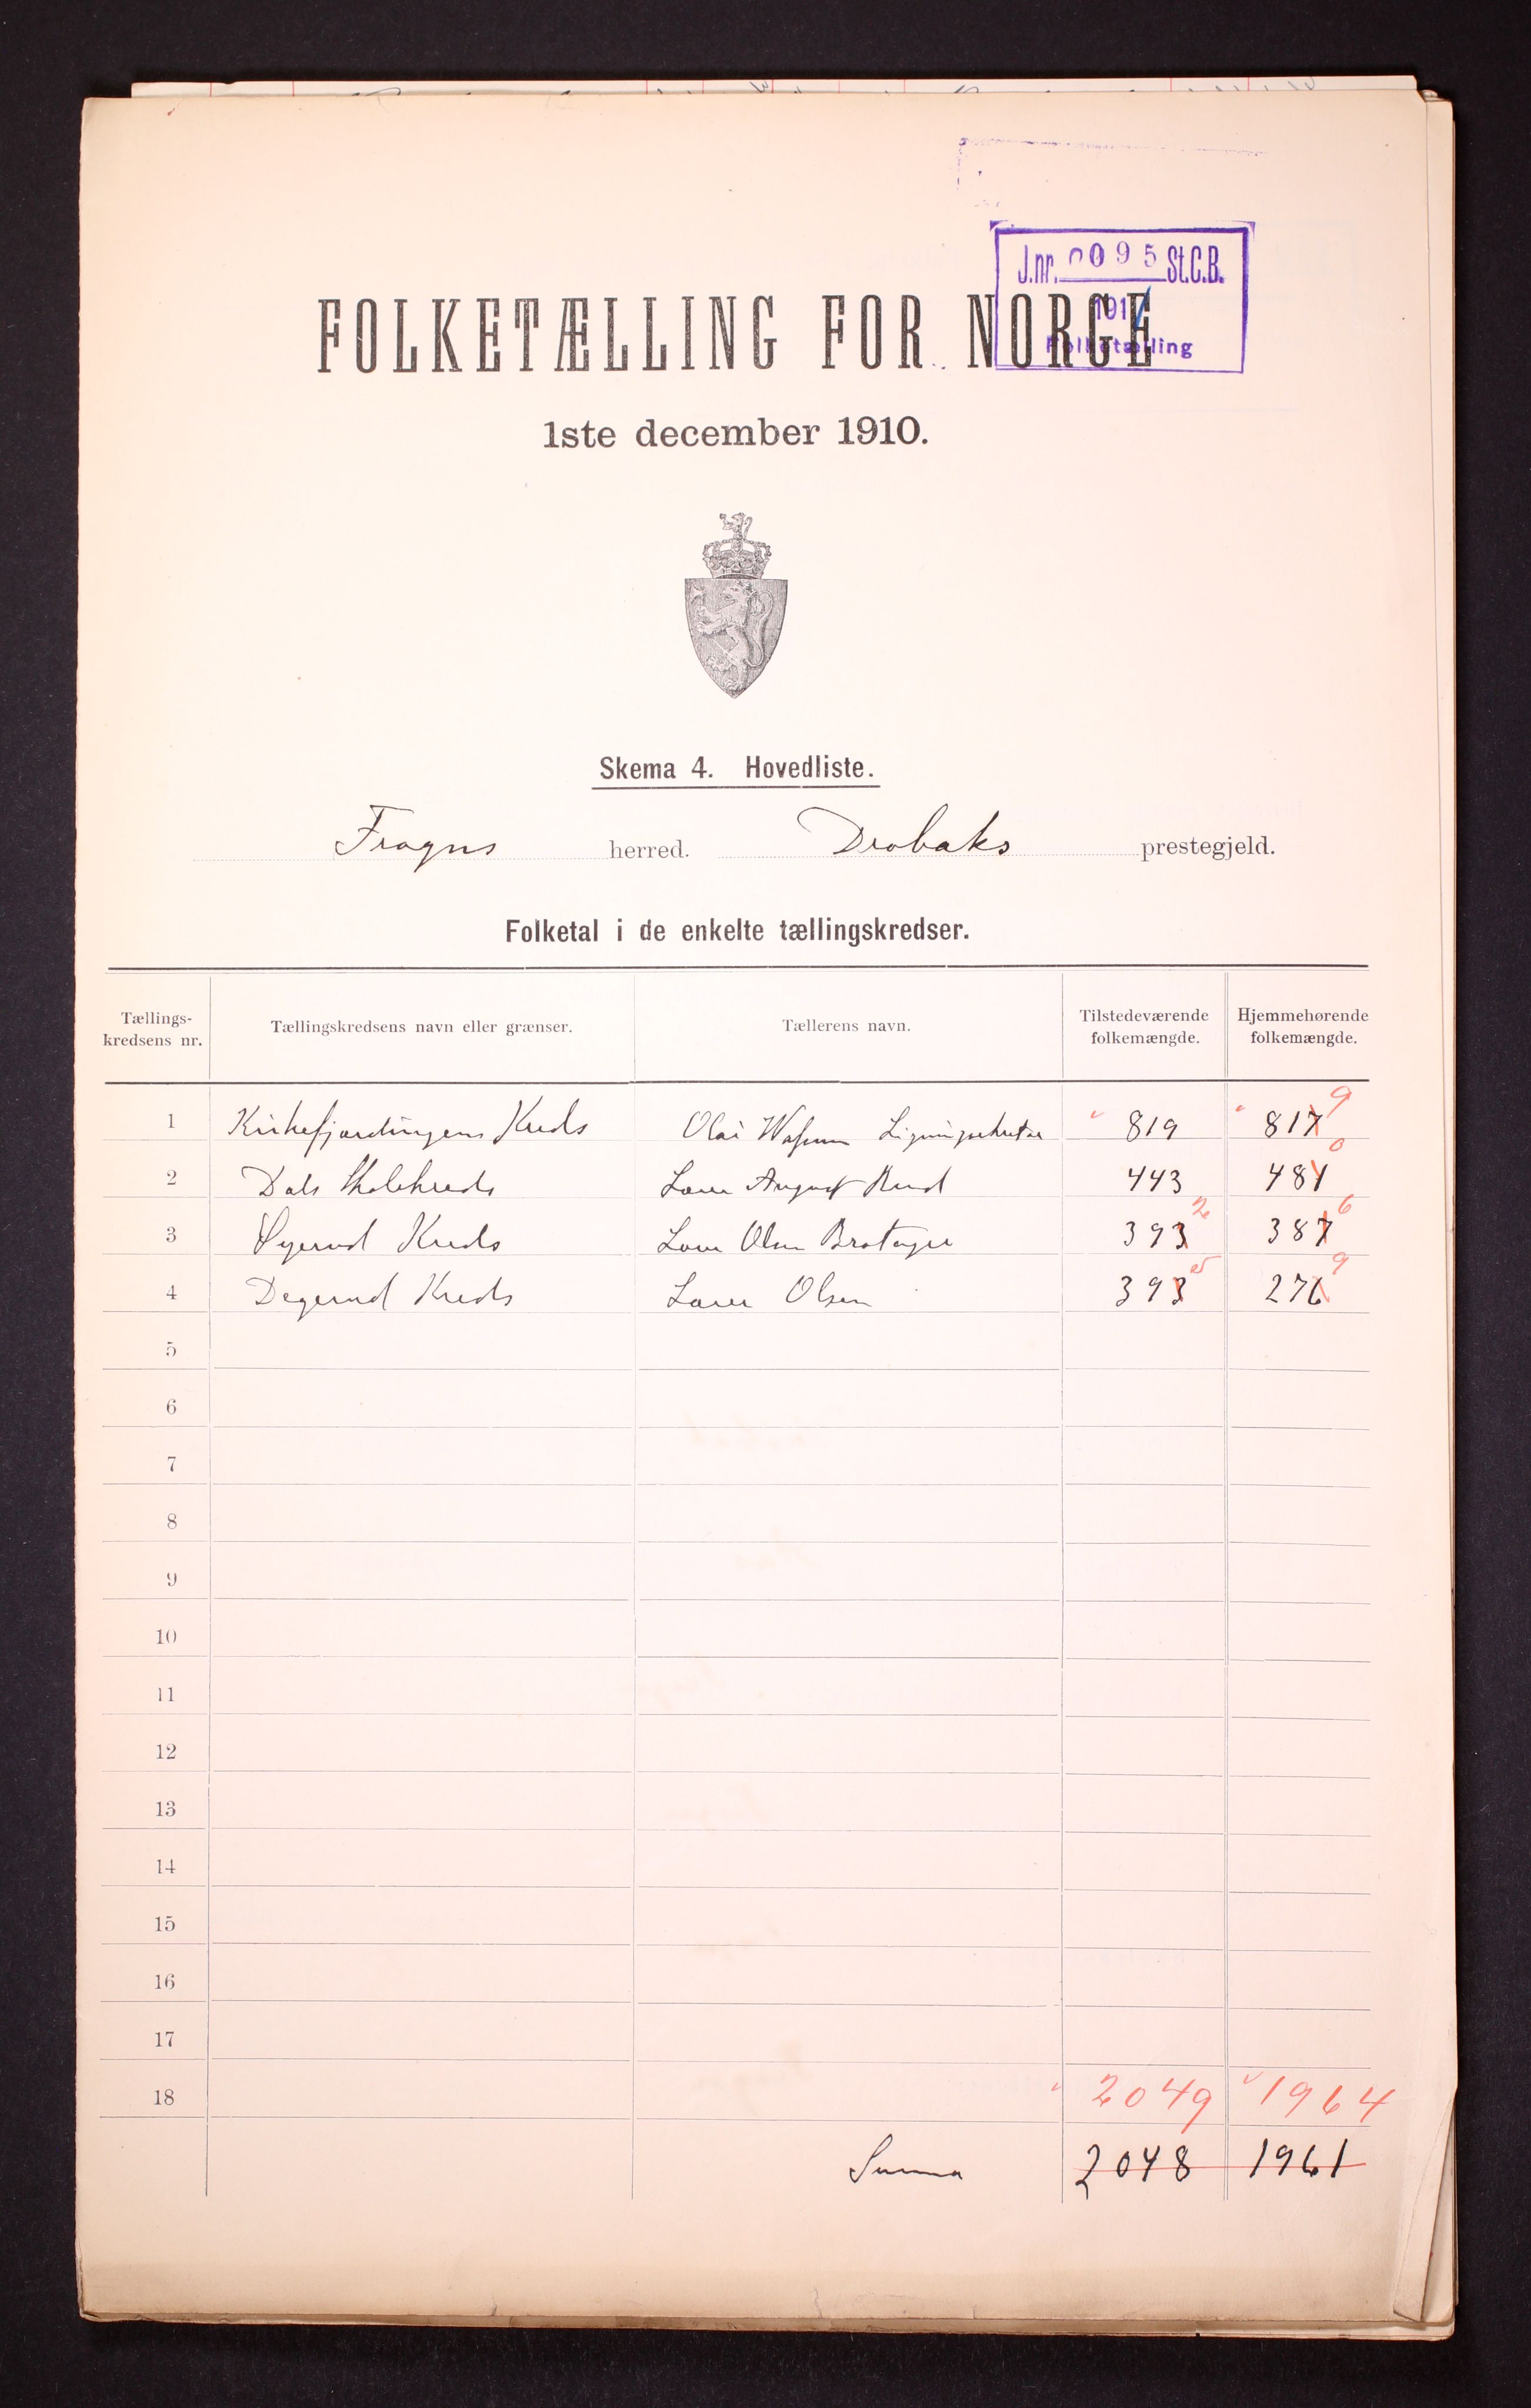 J.nr. 0095 St.C.B.
191
Folketælling
FOLKETÆLLING FOR NORGE
1ste december 1910.
Skema 4. Hovedliste.
Frogns herred. Drøbaks prestegjeld.
Folketal i de enkelte tællingskredser.
Tællings-kredsens nr. Tællingskredsens navn eller grænser. Tællerens navn. Tilstedeværende folkemængde. Hjemmehørende folkemængde.
1 Kirkefjerdingens Kreds Olai 819 817 9
2 Dals Skolekreds Lærer August Rud 443 481 0
3 Øyerud Kreds Lærer Olsen 393 2 387 6
4 Degerud Kreds Lærer Olsen 393 5 276 9
5
6
7
8
9
10
11
12
13
14
15
16
17
18 2049 1964
Summa 2048 1961